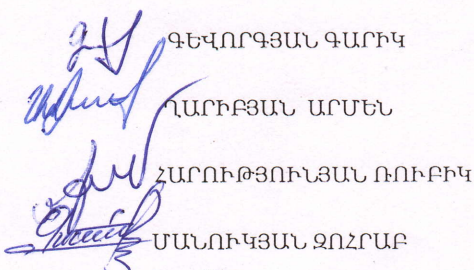 ԳԵՎՈՐԳՅԱՆ ԳԱՐԻԿ
ՂԱՐԻԲՅԱՆ ԱՐՄԵՆ
ՀԱՐՈՒԹՅՈՒՆՅԱՆ ՌՈՒԲԻԿ
ՄԱՆՈՒԿՅԱՆ ԶՈՀՐԱԲ